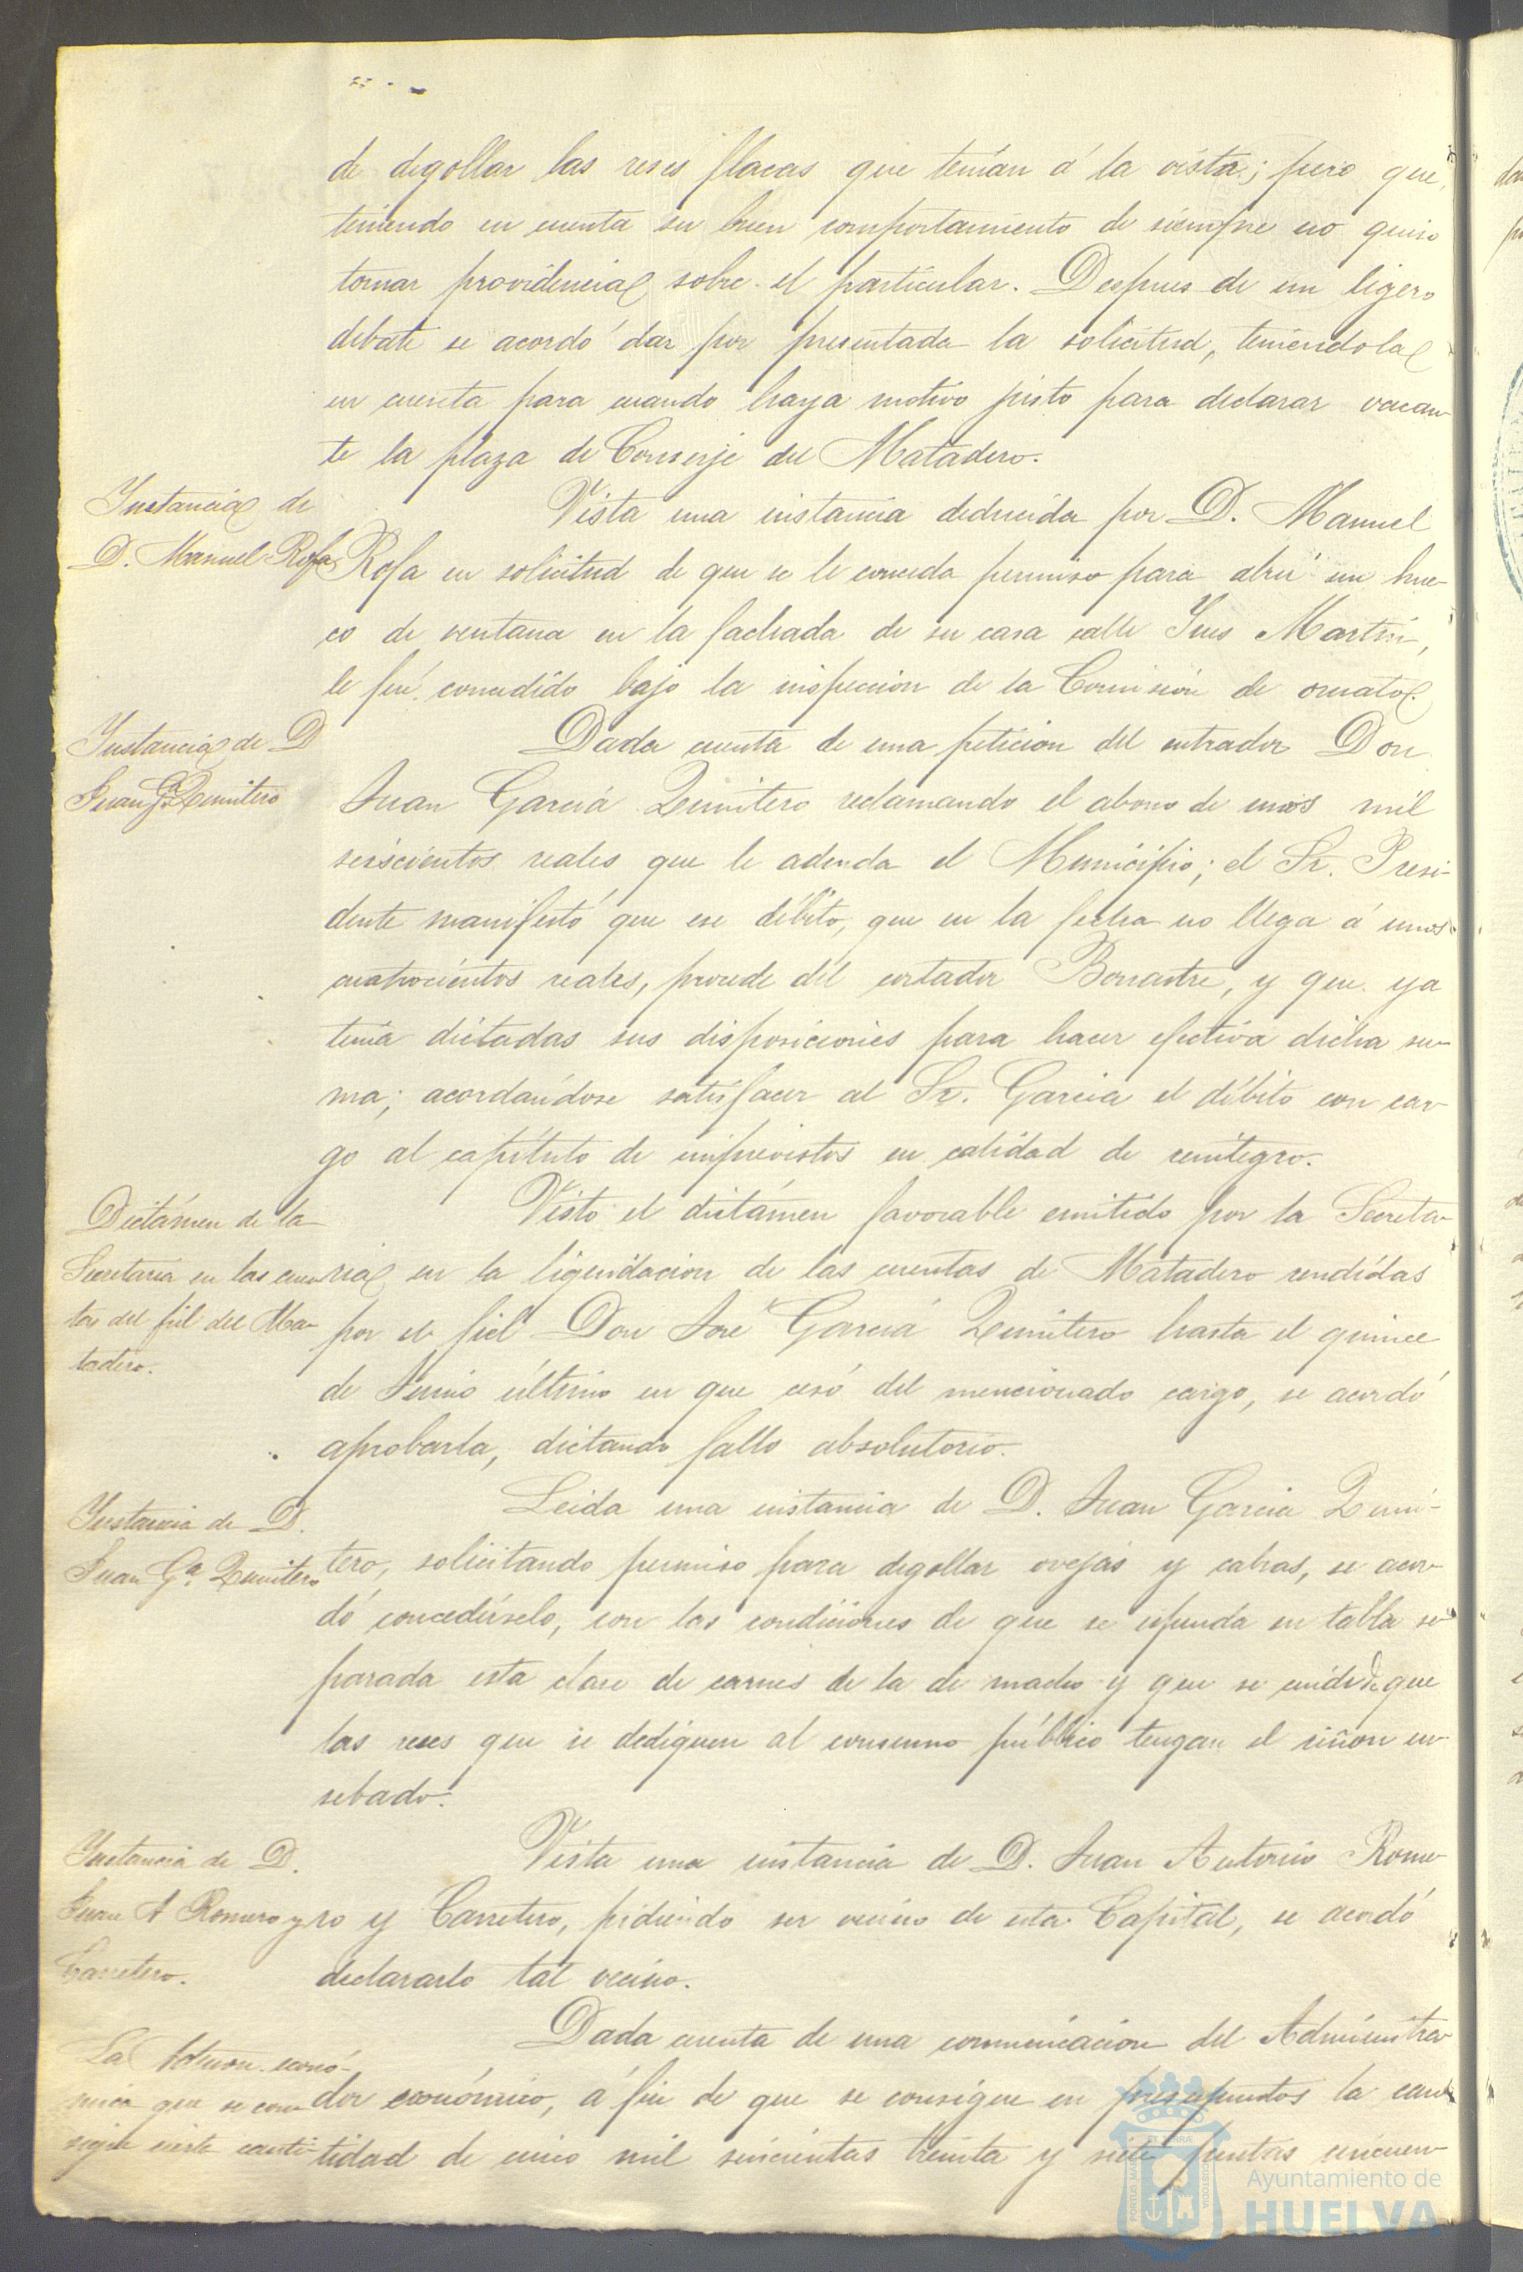 de degollar las reses flacas que tenían á la vista; pero que,
teniendo en cuenta su buen comportamiento de siempre no quiso
tomar providencia sobre el particular. Despues de un ligero
debate se acordó dar por presentada la solicitud, teniendola
en cuenta para cuando haya motivo justo para declarar vacan-
te la plaza de Conserje del Matadero.
Instancia de
D. Manuel Rofa
Vista una instancia deducida por D. Manuel
Rofa en solicitud de que se le conceda permiso para abrir un hue-
co de ventana en la fachada de su casa calle Ines Martin,
le fué concedido bajo la inspeccion de la Comisión de ornato.
Instancia de D
Juan Ga Quintero
Dada cuenta de una peticion del entrador Don
Juan García Quintero reclamando el abono de unos mil
seiscientos reales que le adeuda el Municipio; el Sr. Presi-
dente manifestó que ese débito, que en la fecha no llega á unos
cuatrocientos reales, procede del cortador, y que ya
tenia dictadas sus disposiciones para hacer efectiva dicha su-
ma; acordándose satisfacer al Sr. Garcia el débito con car-
go al capítulo de imprevistos en calidad de reintegro.
Dictámen de la
Secretaría en las cuen-
tas del fiel del Ma-
tadero.
Visto el dictámen favorable emitido por la Secreta-
ria en la liquidacion de las cuentas de Matadero rendidas
por el fiel Don José García Quintero hasta el quince
de Junio último en que cesó del mencionado cargo, se acordó
aprobarla, dictando fallo absolutorio.
Instancia de D.
Juan Ga. Quintero
Leida una instancia de D. Juan Garcia Quin-
tero, solicitando permiso para degollar ovejas y cabras, se acor-
dó concedérselo, con las condiciones de que se espenda en tabla se-
parada esta clase de carnes de la de macho y que se cuide de que
las reses que se dediquen al consumo público tengan el riñon en-
sebado.
Instancia de D.
Juan A Romero y
Carretero.
Vista una instancia de D. Juan Antonio Rome-
ro y Carretero, pidiendo ser vecino de esta Capital, se acordó
declararlo tal vecino.
La Admon. econó-
mica que se con-
signe cierta canti-
Dada cuenta de una comunicacion del Administra-
dor económico, á fin de que se consigne en presupuestos la can-
tidad de cinco mil seiscientas treinta y siete pesetas cincuen-
Ayuntamiento de
HUELVA